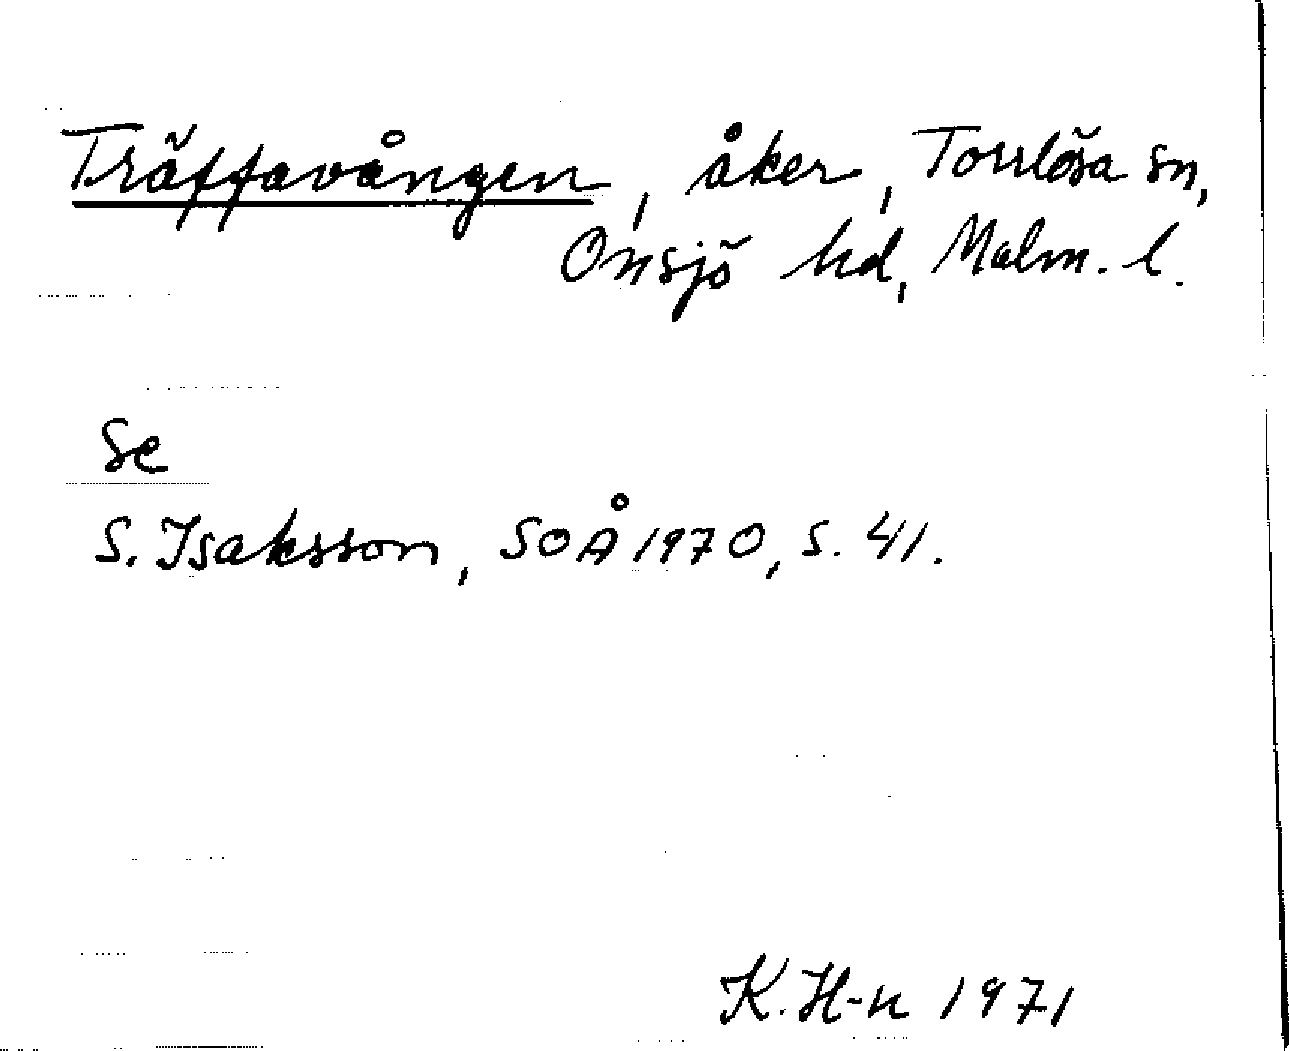 Träffavången, åker, Torrlösa sn,
Onsjö hd, Malm. l.
Se
S. Isaksson, SOÅ 1970, s. 41.
K. H-n 1971